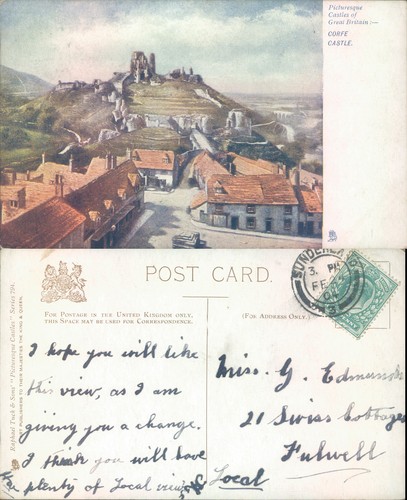 Picturesque
Castles of
Great Britain :—
CORFE
CASTLE.
POST CARD.
FOR POSTAGE IN THE UNITED KINGDOM ONLY,
THIS SPACE MAY BE USED FOR CORRESPONDENCE.
(FOR ADDRESS ONLY.)
Raphael Tuck & Sons' "Picturesque Castles" Series
ART PUBLISHERS TO THEIR MAJESTIES THE KING & QUEEN.
SUNDERLAND
3. PM
FE
04
I hope you will like
this view, as I am
giving you a change.
I think you will have
plenty of Local views
Miss. G. Edmunds
21 Swiss Cottages
Fulwell
Local